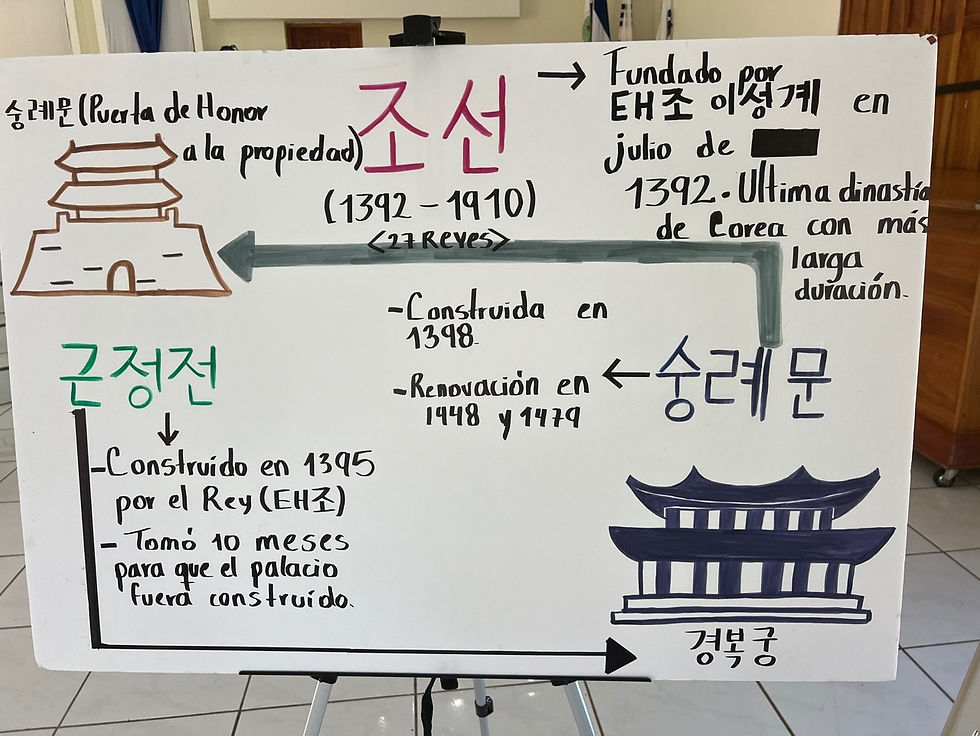 숭례문 (Puerta de Honor
a la propiedad)
조선
(1392 - 1910)
<27 Reyes>
Fundado por
태조 이성계 en
julio de
1392. Ultima dinastía
de Corea con más
larga
duración.
-Construida en
1398.
-Renovación en
1448 y 1479
숭례문
근정전
-Construído en 1395
por el Rey (태조)
- Tomó 10 meses
para que el palacio
fuera construído.
경복궁